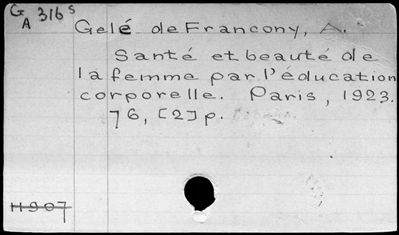 GA 316 s
Gelé de Francony, A.
Santé et beauté de
la femme par l'éducation
corporelle. Paris, 1923.
76, [2] p.
11907